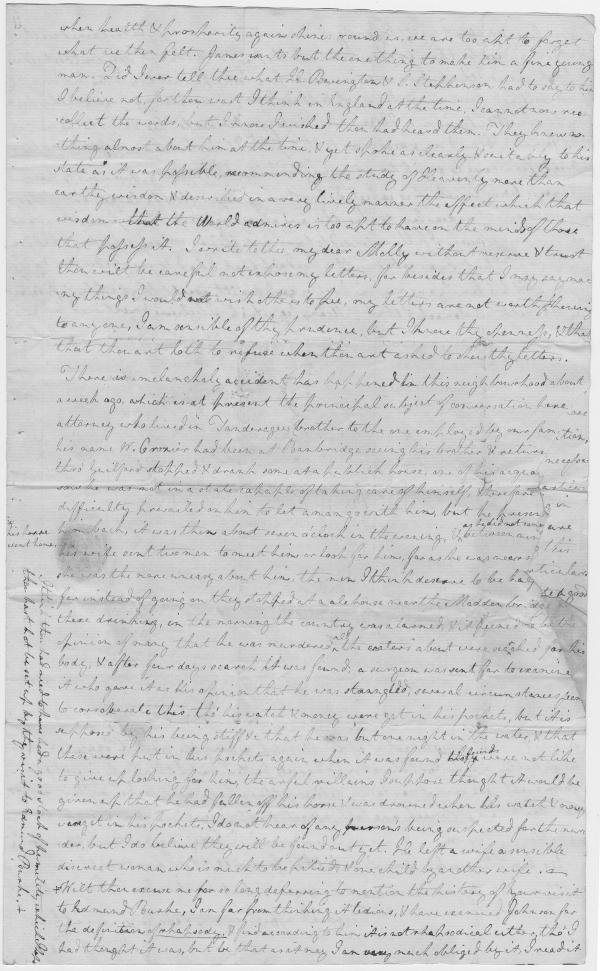 when health & prosperity again shine round us, we are too apt to forget
what we then felt. James wants but the one thing to make him a fine young
man. Did I ever tell thee what & S. Stephenson had to say to him
I believe not, for thou wast I think in England at the time, I cannot now rec-
ollect the words, but I know I wished thou had heard them. They knew no-
thing almost about him at the time, & yet spoke as clearly & suitably to his
state as it was possible, recommending the study of Heavenly more than
earthly wisdom, & described in a very lively manner the effect which that
wisdom that the World admires is too apt to have on the minds of those
that possess it. I write to thee my dear Molly without reserve & trust
thou wilt be careful not expose my letters, for besides that I may say ma-
ny things I would not wish others to see, my letters are not worth shewing
to any one, I am sensible of thy prudence, but I know thy openness, &
that thou art loth to refuse when thou art asked to shew thy letters.
There is a melancholy accident has happened in this neighbourhood about
a week ago, which is at present the principal subject of conversation here, an
attorney who lived in Tanderagee, brother to the one employed by our family
his name W. Crozier had been at Banbridge seeing his brother & return
thro' Guilford stopped & drank some at a publick house, one of his acqua
saw he was not in a state capable of taking care of himself, therefore
difficulty prevailed on him to let a man go with him, but he
him back, it was then about seven o'clock in the evening,
his wife sent two men to meet him or look for him, for as he was near
she was the more uneasy about him, the men I think deserve to be
for instead of going on they stopped at a ale house near the Madden
there drinking, in the morning the country was alarmed, & it seemed to be the
opinion of many that he was murdered, all the waters about were searched for his
body, & after four days search it was found, a surgeon was sent for to examine
it who gave it as his opinion that he was strangled, several circumstances seem
to corroborate this, tho' his watch & money were yet in his pockets, but it is
supposed by his being stiff &c that he was but one night in the water, & that
these were put in his pockets again when it was found his friends were not like
to give up looking for him, the artful villains I suppose thought it would be
given up that he had fallen off his horse & was drowned when his watch & money
were yet in his pockets, I do not hear of any person's being suspected for the mur-
der, but I do believe they will be found out yet. He left a wife a sensible
discreet woman who is much to be pitied, & one child by another wife.
Wilt thou excuse me for so long deferring to mention the history of your visit
to Edmund Burke, I am far from thinking it tedious, & have examined Johnson for
the definition of rhapsody, & find according to him it is not rhapsodical either, tho' I
had thought it was, but be that as it may I am very much obliged by it, I read it
his horse
went home
I think thou had need to have had a good stock of humility which I hope
thou hast not to be set up by thy visit to Edmund Burke. +